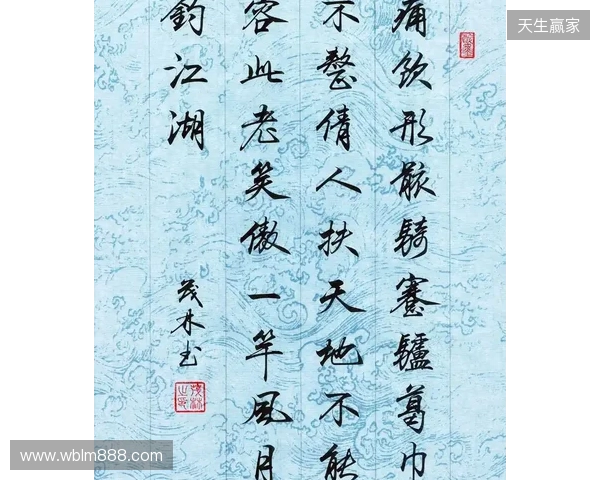 痛飲形骸騎蹇驢葛巾
不整倩人扶天地不能
容此老笑傲一竿風月
釣江湖
茂林书
天生赢家
www.wblm888.com